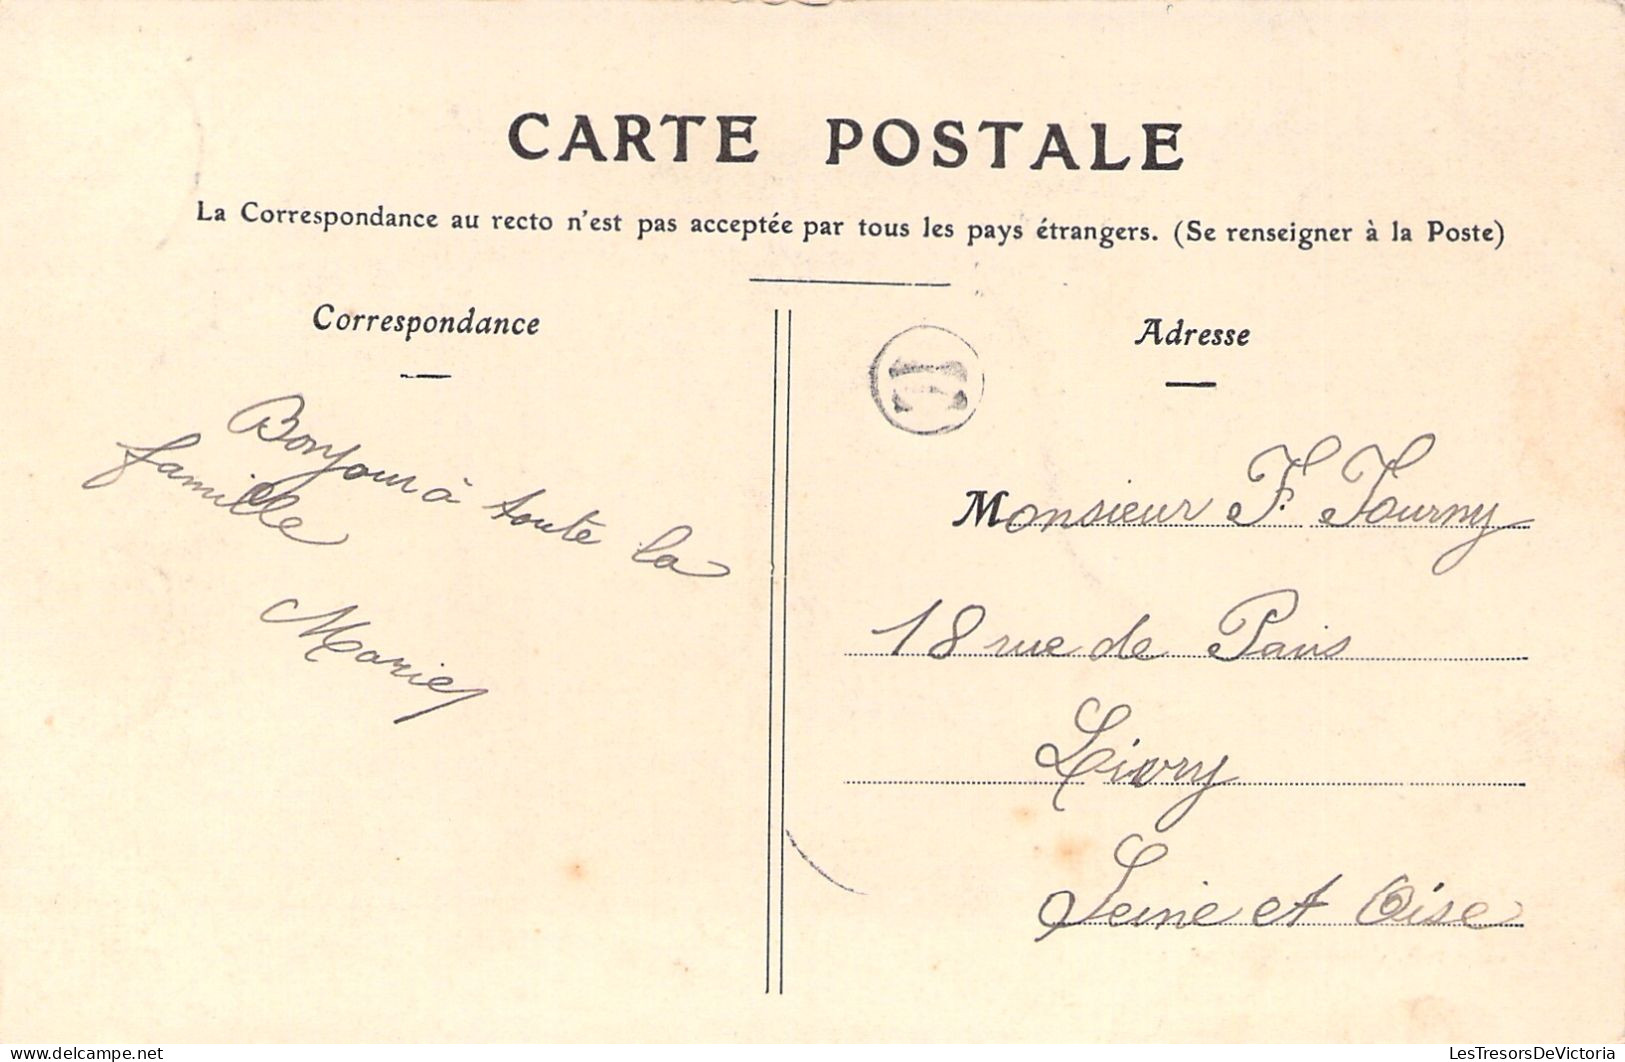 CARTE POSTALE
La Correspondance au recto n'est pas acceptée par tous les pays étrangers. (Se renseigner à la Poste)
Correspondance
Bonjour à toute la
famille
Marie
Adresse
Monsieur F. Tourny
18 rue de Paris
Livry
Seine et Oise
LesTresorsDeVictoria